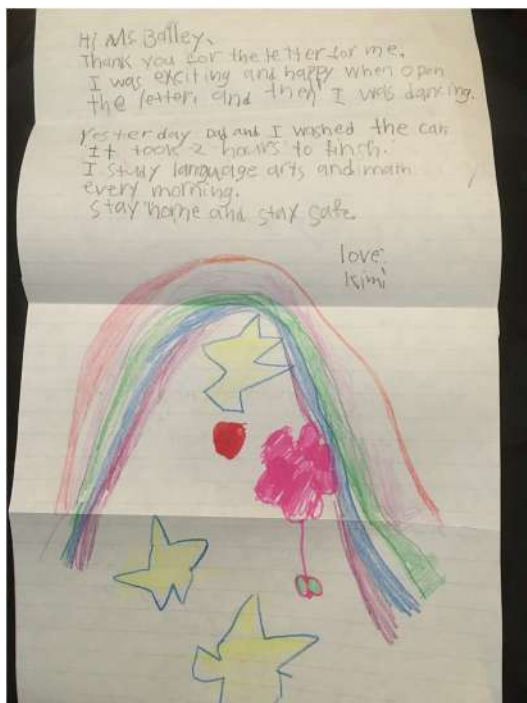 Hi Ms Bailey,
Thank you for the letter for me.
I was exciting and happy when open
the letter, and then I was dancing.
Yesterday Dad and I washed the car.
It took 2 hours to finish.
I study language arts and math
every morning.
Stay home and stay safe.
love.
Kimi